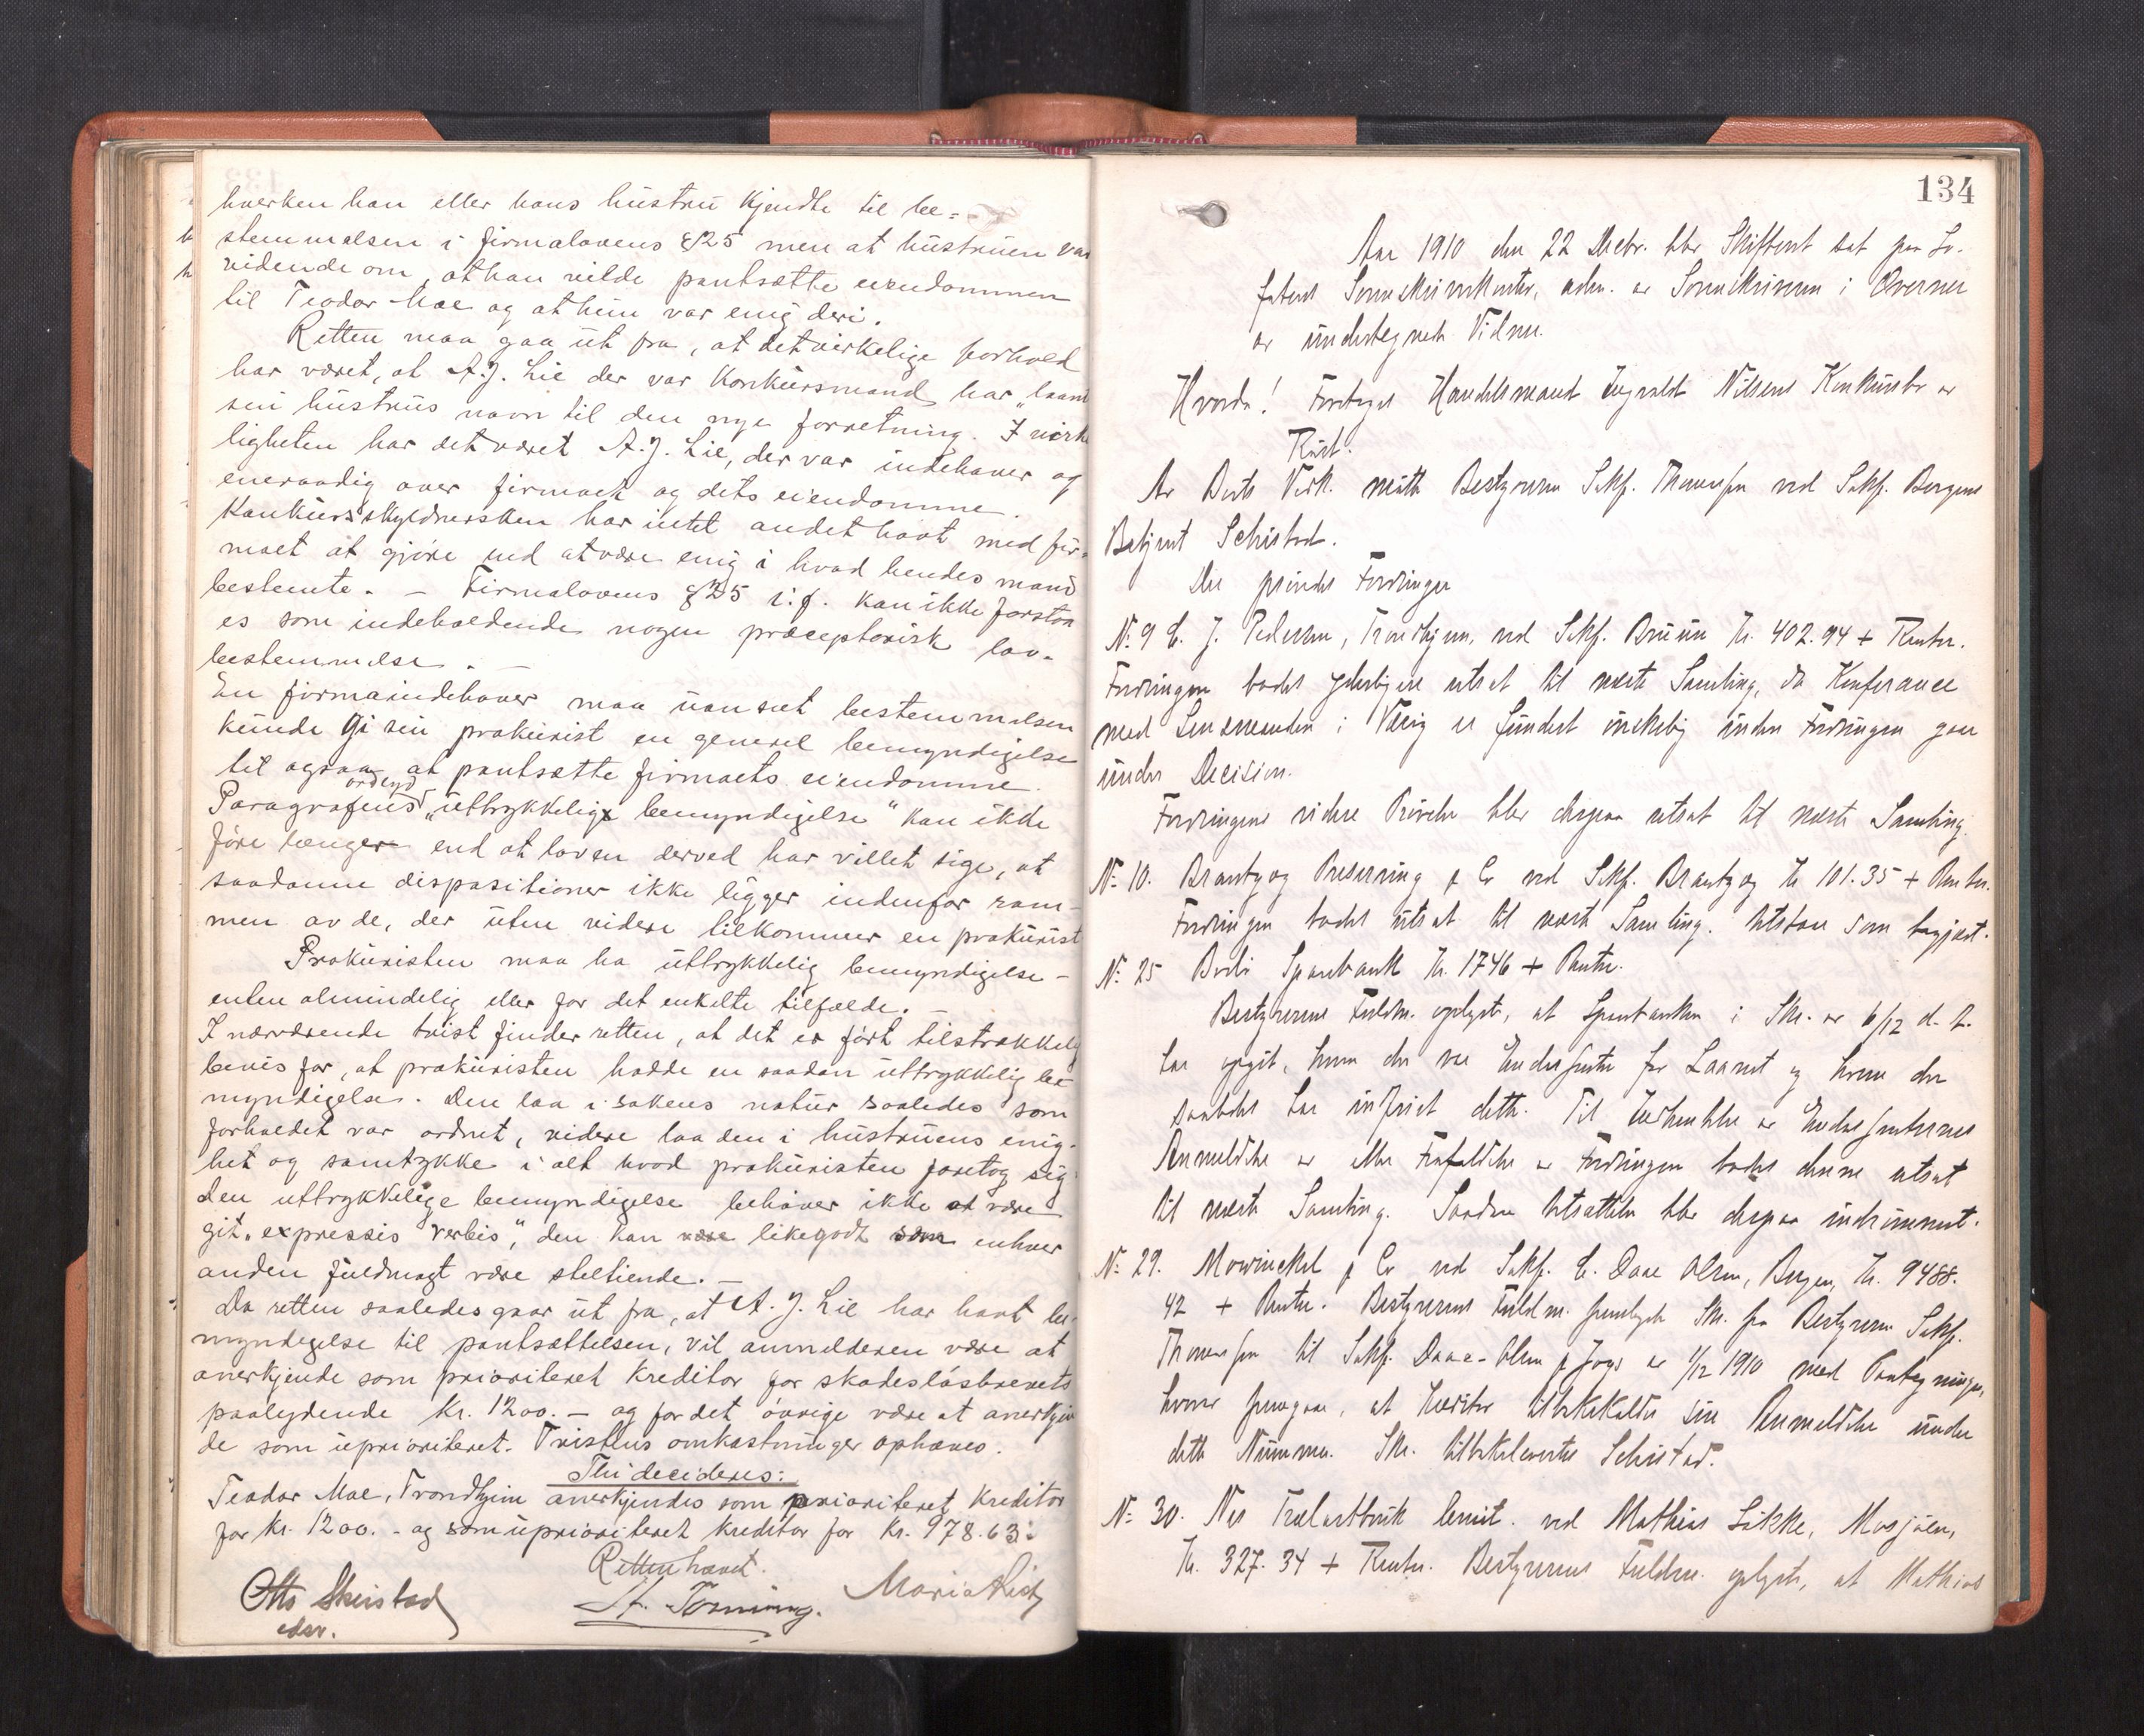 hverken han eller hans hustru kjendte til be=
stemmelsen i firmalovens §25 men at hustruen var
vidende om, at han vilde pantsætte eiendommen
til Teodor Moe og at hun var enig deri.
Retten maa gaa ut fra, at det virkelige forhold
har været, at A.J. Lie der var konkursmand har "laant
sin hustrus navn til den nye forretning. I virke
ligheten har det været A.J. Lie, der var indehaver og
eneraadig over firmaet og dets eiendomme.
Konkursskyldnersken har intet andet havt med fir-
maet at gjöre end at være enig i hvad hendes mand
bestemte. - Firmalovens §25 i.f. kan ikke forstaa
es som indeholdende nogen præceptorisk lov-
bestemmelse. -
En firmaindehaver maa uanset bestemmelsen
kunde gi sin prokurist en generel bemyndigelse
til ogsaa at pantsætte firmaets eiendomme.
ordlyd
Paragrafens "uttrykkelige bemyndigelse" kan ikke
före længer end at loven derved har villet sige, at
saadanne dispositioner ikke ligger indenfor ram-
men av de, der uten videre tilkommer en prokurist
Prokuristen maa ha uttrykkelig bemyndigelse -
enten almindelig eller for det enkelte tilfælde. -
I nærværende tvist finder retten, at det er fört tilstrækkelig
bevis for, at prokuristen hadde en saadan uttrykkelig be-
myndigelse. Den laa i sakens natur saaledes som
forholdet var ordnet, videre laa den i hustruens enig-
het og samtykke i alt hvad prokuristen foretog sig.
Den uttrykkelige bemyndigelse behöver ikke at være
git "expressis verbis", den kan være likegodt som enhver
anden fuldmagt være stiltiende. -
Da retten saaledes gaar ut fra, at A.J. Lie har havt be-
myndigelse til pantsættelsen, vil anmelderen være at
anerkjende som prioriteret kreditor for skadeslösbrevets
paalydende kr. 1200. - og for det övrige være at anerkjen
de som uprioriteret. Tvistens omkostninger ophæves.
Thi decideres:
Teodor Moe, Trondhjem anerkjendes som prioriteret kreditor
for kr. 1200. - og som uprioriteret kreditor for kr. 978.63.
Retten hævet.
Otto Skeistad
edsv.
Maria Lie
134
Aar 1910 den 22 Decbr. blev Skifteret sat paa Lo-
fotens Sorenskriverkontor, adm. av Sorenskriveren i Overvær
av undertegnede Vidner.
Hvorda! Foretages Handelsmand Ingvald Nilsens Konkursbo av
Röst.
Av Boets Vedk. mötte Bestyreren Sakf. Thomesen ved Sakf. Borgens
Betjent Schistad.
Der prövedes Fordringer
No 9 C. J. Pedersen, Trondhjem, ved Sakf. Bruun Kr. 402.94 + Renter.
Fordringen bedes yderligere utsat til næste Samling, da Konferance
med Lensmanden i Væröy er fundet önskelig inden Fordringen gaar
under Decision.
Fordringens videre Prövelse blev derpaa utsat til næste Samling.
No 10. Brantzog Preserving & Co ved Sakf. Brantzog Kr 101.35 + Renter.
Fordringen bedes utsat til næste Samling. Utstaar som begjært.
No 25 Bodö Sparebank Kr. 1746 + Renter.
Bestyrerens Fuldm. oplyste, at Sparebanken i Skr. av 6/12 d. A.
har opgit, hvem der var Endossenter for Laanet og hvem der
saaledes har indfriet dette. Til Indhentelse av Endossenternes
Anmeldelse av eller Frafaldelse av Fordringen bedes denne utsat
til næste Samling. Saadan Utsættelse blev derpaa indrömmet.
No 29. Mowinckel & Co ved Sakf. C. Daae Olsen, Bergen, Kr. 9488.
42 + Renter. Bestyrerens Fuldm. fremlagde Skr. fra Bestyreren Sakf.
Thomesen til Sakf. Daae-Olsen & Joys av 1/12 1910 med Paategninger,
hvorav fremgaar, at Kreditor tilbakekalder sin Anmeldelse under
dette Nummer. Skr. tilbakeleveertes Schistad.
No 30. Nes Trælastbruk limit. ved Mathias Lökke, Mosjöen,
Kr. 327.34 + Renter. Bestyrerens Fuldm. oplyste, at Mathias